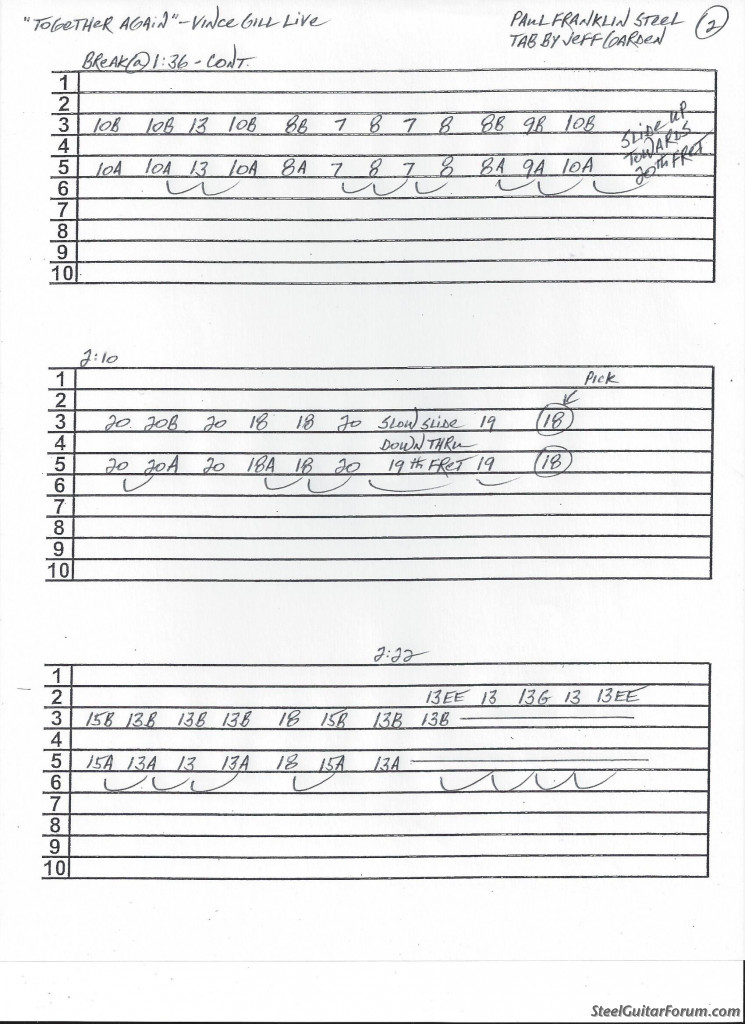 "TOGETHER AGAIN" - VINCE GILL LIVE
PAUL FRANKLIN STEEL
TAB BY JEFF GARDEN
2
BREAK @ 1:36 - CONT.
1
2
3 10B 10B 13 10B 8B 7 8 7 8 8B 9B 10B
4
5 10A 10A 13 10A 8A 7 8 7 8 8A 9A 10A
6
7
8
9
10
SLIDE UP
TOWARDS
20th FRET
2:10
1 PICK
2
3 20 20B 20 18 18 20 SLOW SLIDE 19 18
4 DOWN THRU
5 20 20A 20 18A 18 20 19th FRET 19 18
6
7
8
9
10
2:22
1
2 13EE 13 13G 13 13EE
3 15B 13B 13B 13B 18 15B 13B 13B
4
5 15A 13A 13 13A 18 15A 13A
6
7
8
9
10
SteelGuitarForum.com